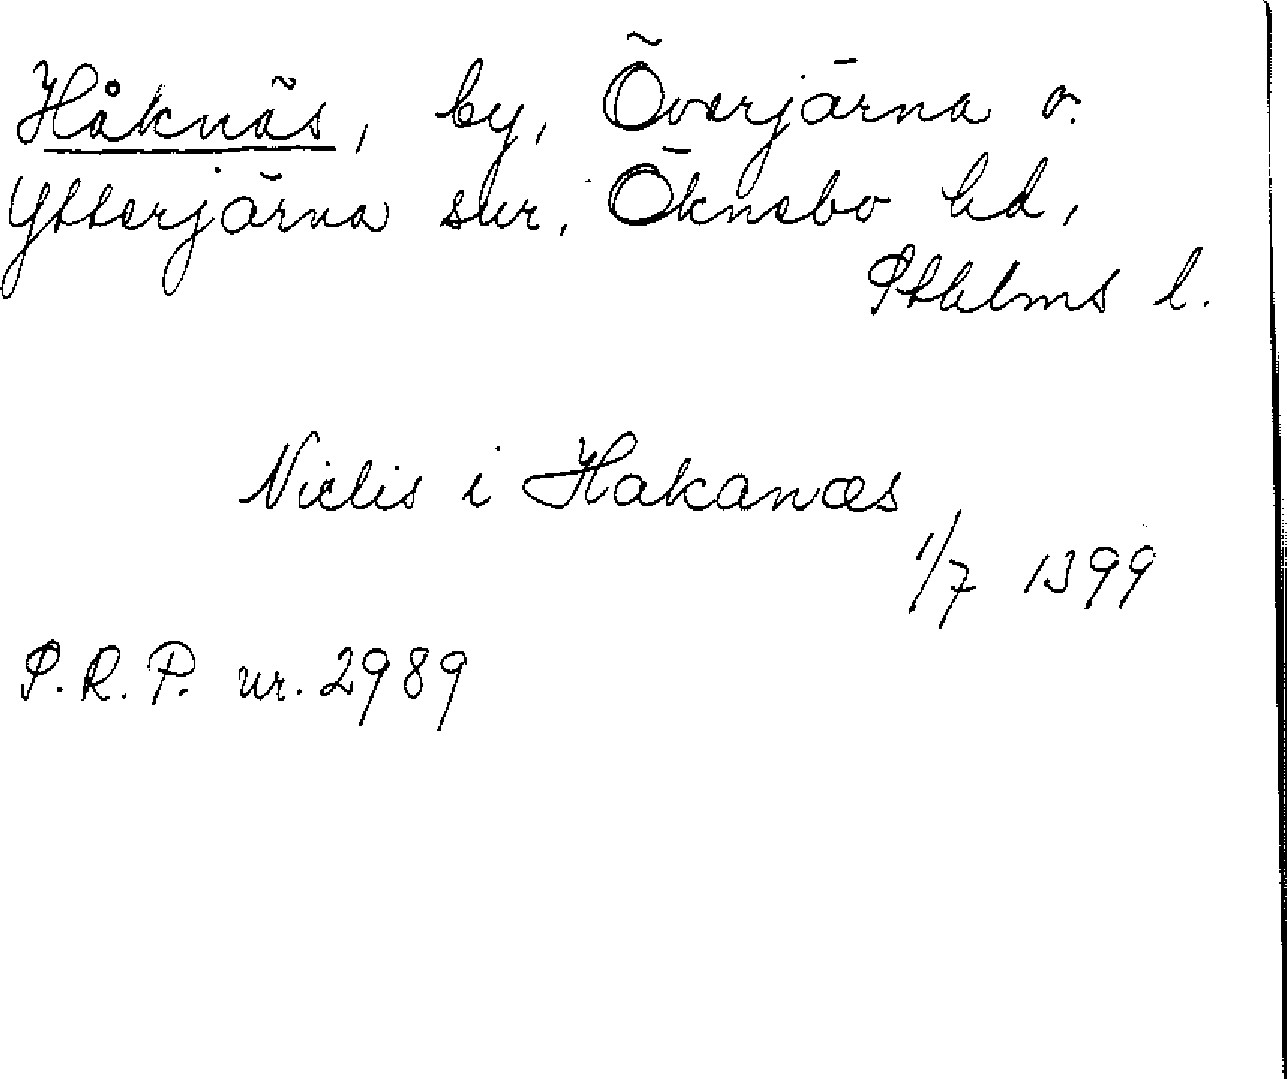 Håknäs, by, Överjärna o.
Ytterjärna snr, Öknebo hd,
Sthlms l.
Nielis i Hakanæs
1/7 1399
S.R.P. nr. 2989